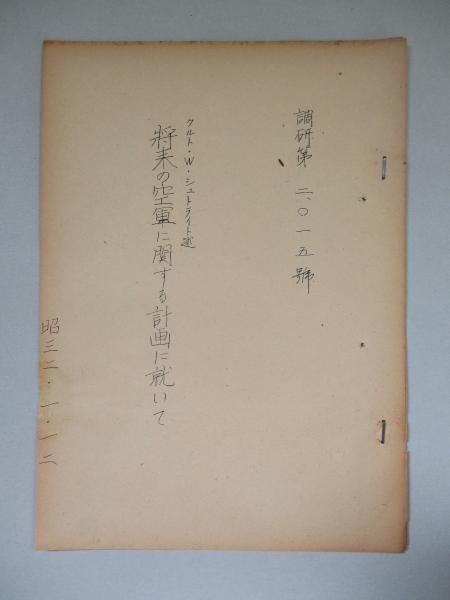 調研第 二、〇一五號
クルト・W・シュトライト述
将来の空軍に関する計画に就いて
昭三二・一・一二